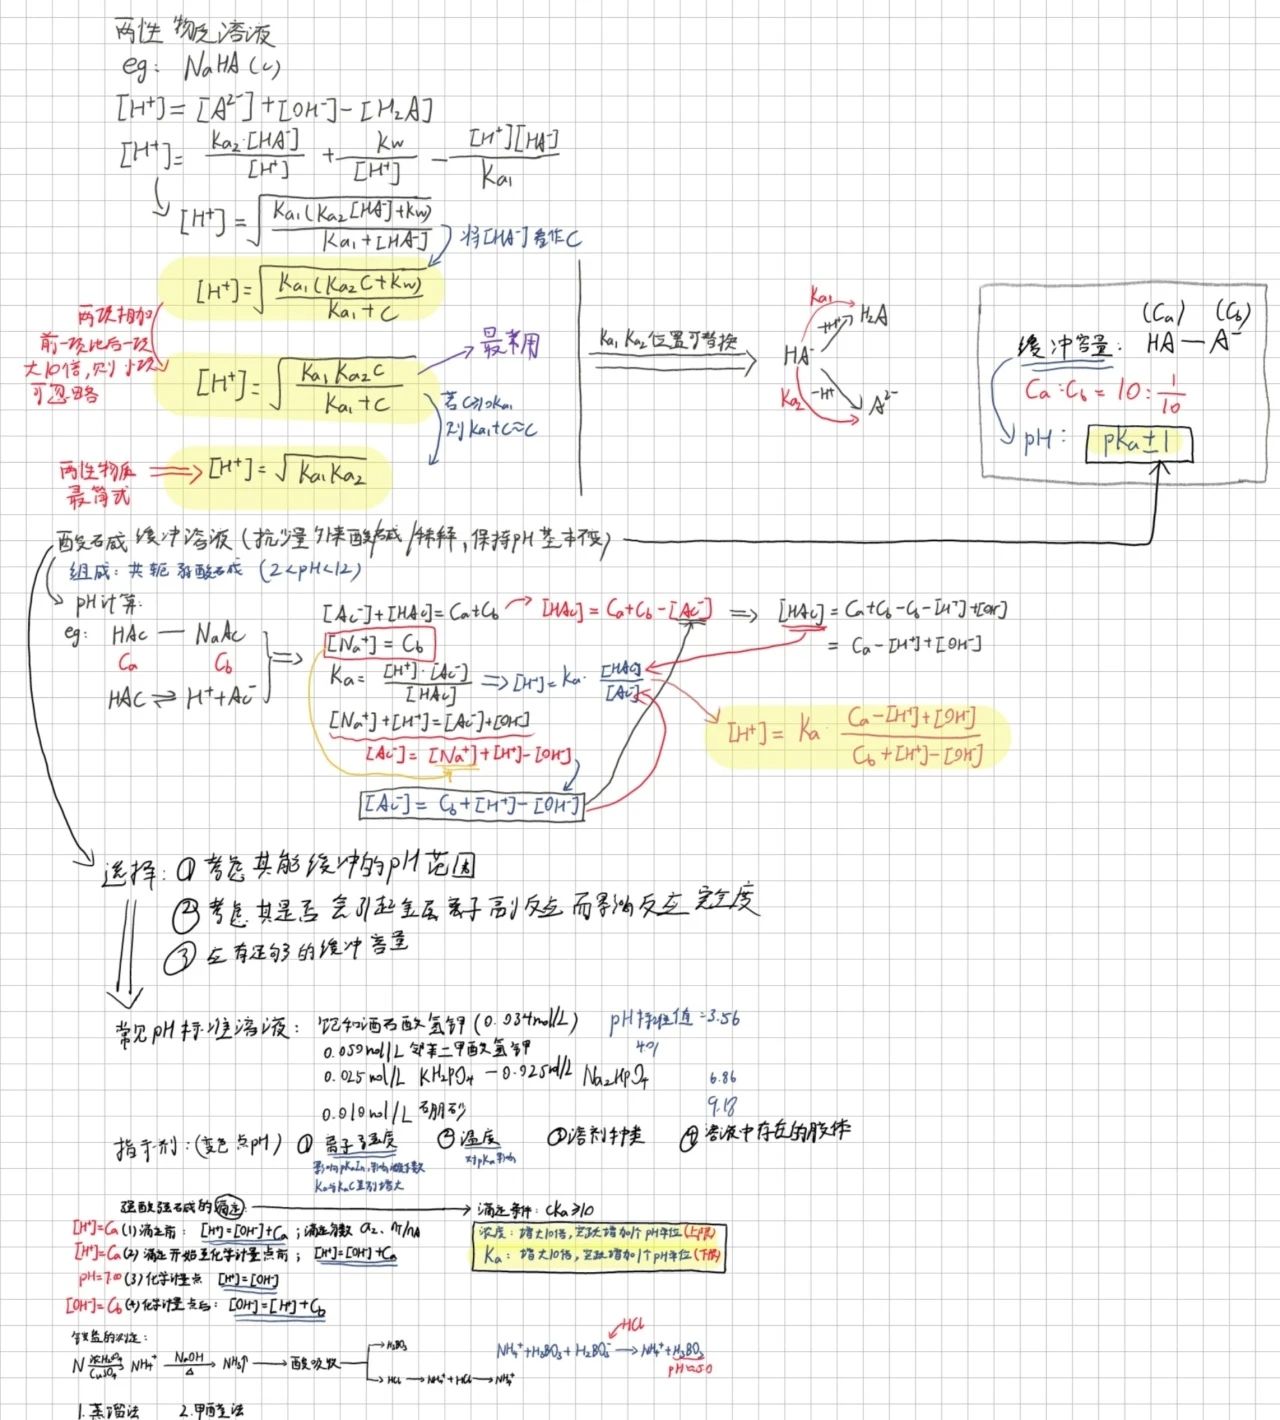 两性物质溶液
eg: NaHA(c)
[H⁺]=[A²⁻]+[OH⁻]-[H₂A]
[H⁺]= Ka₂·[HA⁻]/[H⁺] + Kw/[H⁺] - [H⁺][HA⁻]/Ka₁
[H⁺]=√(Ka₁(Ka₂[HA⁻]+Kw)/(Ka₁+[HA⁻]))
将[HA⁻]看作C
[H⁺]=√(Ka₁(Ka₂C+Kw)/(Ka₁+C))
两项相加
前一项比后一项
大10倍,则小项
可忽略
[H⁺]=√(Ka₁Ka₂C/(Ka₁+C))
最常用
若C>10Ka₁
则Ka₁+C≈C
两性物质
最简式
[H⁺]=√(Ka₁Ka₂)
Ka₁ Ka₂位置可替换
HA⁻
Ka₁
+H⁺
H₂A
Ka₂
-H⁺
A²⁻
(Ca) (Cb)
缓冲容量: HA—A⁻
Ca:Cb=10:1/10
pH: pKa±1
酸碱缓冲溶液(抗少量外来酸/碱/稀释,保持pH基本不变)
组成:共轭弱酸碱 (2<pH<12)
pH计算:
eg: HAc — NaAc
Ca Cb
HAc⇌H⁺+Ac⁻
[Ac⁻]+[HAc]=Ca+Cb
[HAc]=Ca+Cb-[Ac⁻]
[HAc]=Ca+Cb-Cb-[H⁺]+[OH⁻]
=Ca-[H⁺]+[OH⁻]
[Na⁺]=Cb
Ka=[H⁺]·[Ac⁻]/[HAc] ⇒[H⁺]=Ka·[HAc]/[Ac⁻]
[Na⁺]+[H⁺]=[Ac⁻]+[OH⁻]
[Ac⁻]=[Na⁺]+[H⁺]-[OH⁻]
[Ac⁻]=Cb+[H⁺]-[OH⁻]
[H⁺]=Ka·(Ca-[H⁺]+[OH⁻])/(Cb+[H⁺]-[OH⁻])
选择:①考虑其能缓冲的pH范围
②考虑其是否会引起金属离子副反应而影响反应完全度
③应有足够的缓冲容量
常见pH标准溶液: 饱和酒石酸氢钾(0.034mol/L) pH标准值=3.56
0.050mol/L 邻苯二甲酸氢钾 4.01
0.025mol/L KH₂PO₄-0.025mol/L Na₂HPO₄ 6.86
0.010mol/L 硼砂 9.18
指示剂:(变色点pH) ①离子强度 ②温度 ③溶剂种类 ④溶液中存在的胶体
影响pKaIn,
对pKa影响
强酸强碱的滴定
滴定条件: cKa≥10
[H⁺]=Ca (1)滴定前: [H⁺]=[OH⁻]+Ca;滴定分数
[H⁺]=Ca (2)滴定开始至化学计量点前: [H⁺]=[OH⁻]+Ca
pH=7.00 (3)化学计量点 [H⁺]=[OH⁻]
[OH⁻]=Cb (4)化学计量点后: [OH⁻]=[H⁺]+Cb
浓度: 增大10倍,突跃增加1个pH单位(上限)
Ka: 增大10倍,突跃增加1个pH单位(下限)
铵盐的测定:
N 浓H₂SO₄/CuSO₄ NH₄⁺ NaOH/△ NH₃↑ → 酸吸收
H₃BO₃
HCl→NH₄⁺+HCl→NH₄⁺
HCl
NH₄⁺+H₃BO₃+H₂BO₃⁻→NH₄⁺+H₃BO₃
pH≈5.0
1.蒸馏法 2.甲醛法